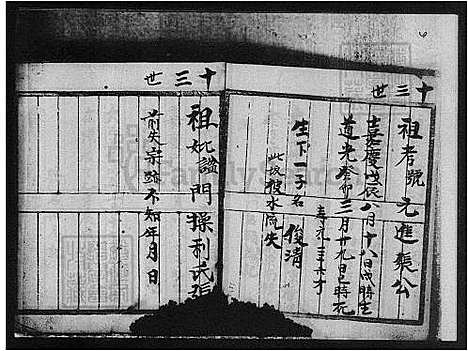 十三世
祖考號元進張公
嘉慶戊辰八月十八日戌時生
道光癸卯三月廿九日巳時死
壽元三十六才
生下一子名俊清
此坟被水流失
十三世
祖妣諡門操利氏張
前失宗跡不知年月日